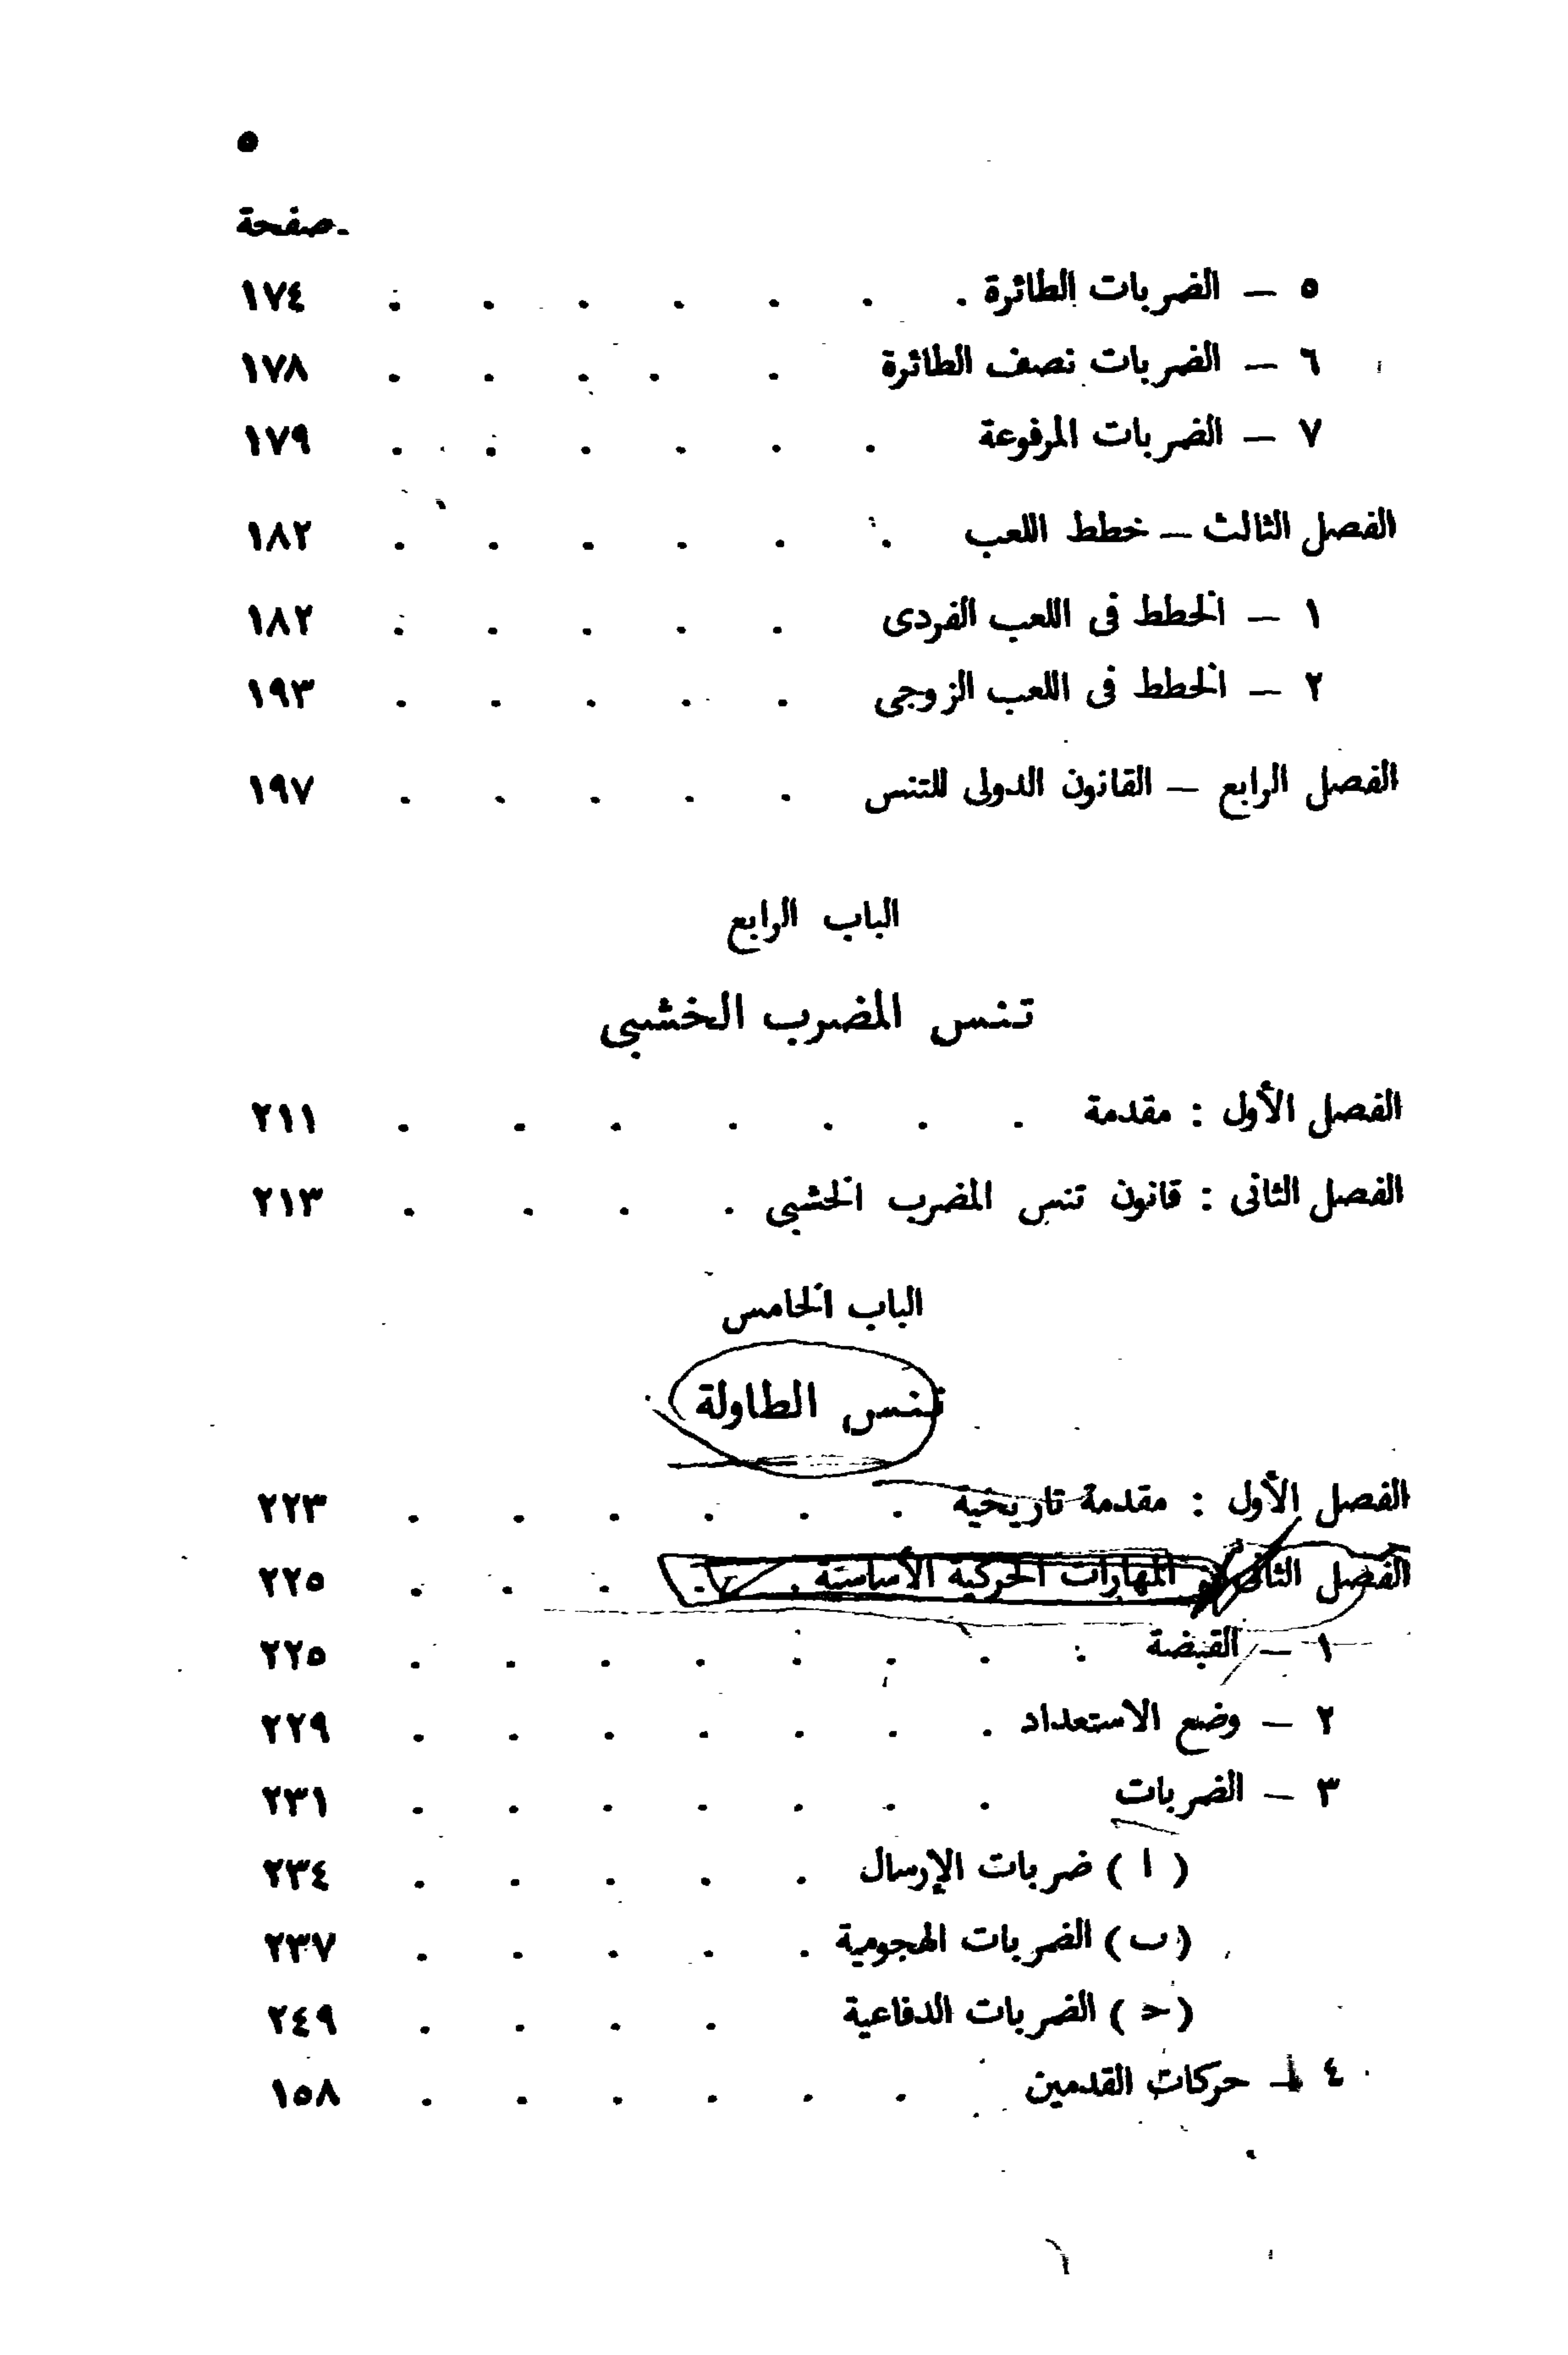 ٥
صفحة
٥ — الضربات الطائرة . . . . . . . ١٧٤
٦ — الضربات نصف الطائرة . . . . . ١٧٨
٧ — الضربات المرفوعة . . . . . . ١٧٩
الفصل الثالث — خطط اللعب . . . . . . ١٨٢
١ — الخطط فى اللعب الفردى . . . . . ١٨٢
٢ — الخطط فى اللعب الزوجى . . . . . ١٩٣
الفصل الرابع — القانون الدولى للتنس . . . . . ١٩٧
الباب الرابع
تنس المضرب الخشبى
الفصل الأول : مقدمة . . . . . . . ٢١١
الفصل الثانى : قانون تنس المضرب الخشبى . . . . ٢١٣
الباب الخامس
تنس الطاولة
الفصل الأول : مقدمة تاريخية . . . . . . ٢٢٣
الفصل الثانى : المهارات الحركية الأساسية . . . . . ٢٢٥
١ — القبضة . . . . . . . . ٢٢٥
٢ — وضع الاستعداد . . . . . . . ٢٢٩
٣ — الضربات . . . . . . . ٢٣١
( ا ) ضربات الإرسال . . . . . ٢٣٤
(ب) الضربات الهجومية . . . . . ٢٣٧
(ح) الضربات الدفاعية . . . . ٢٤٩
٤ — حركات القدمين . . . . . . ١٥٨